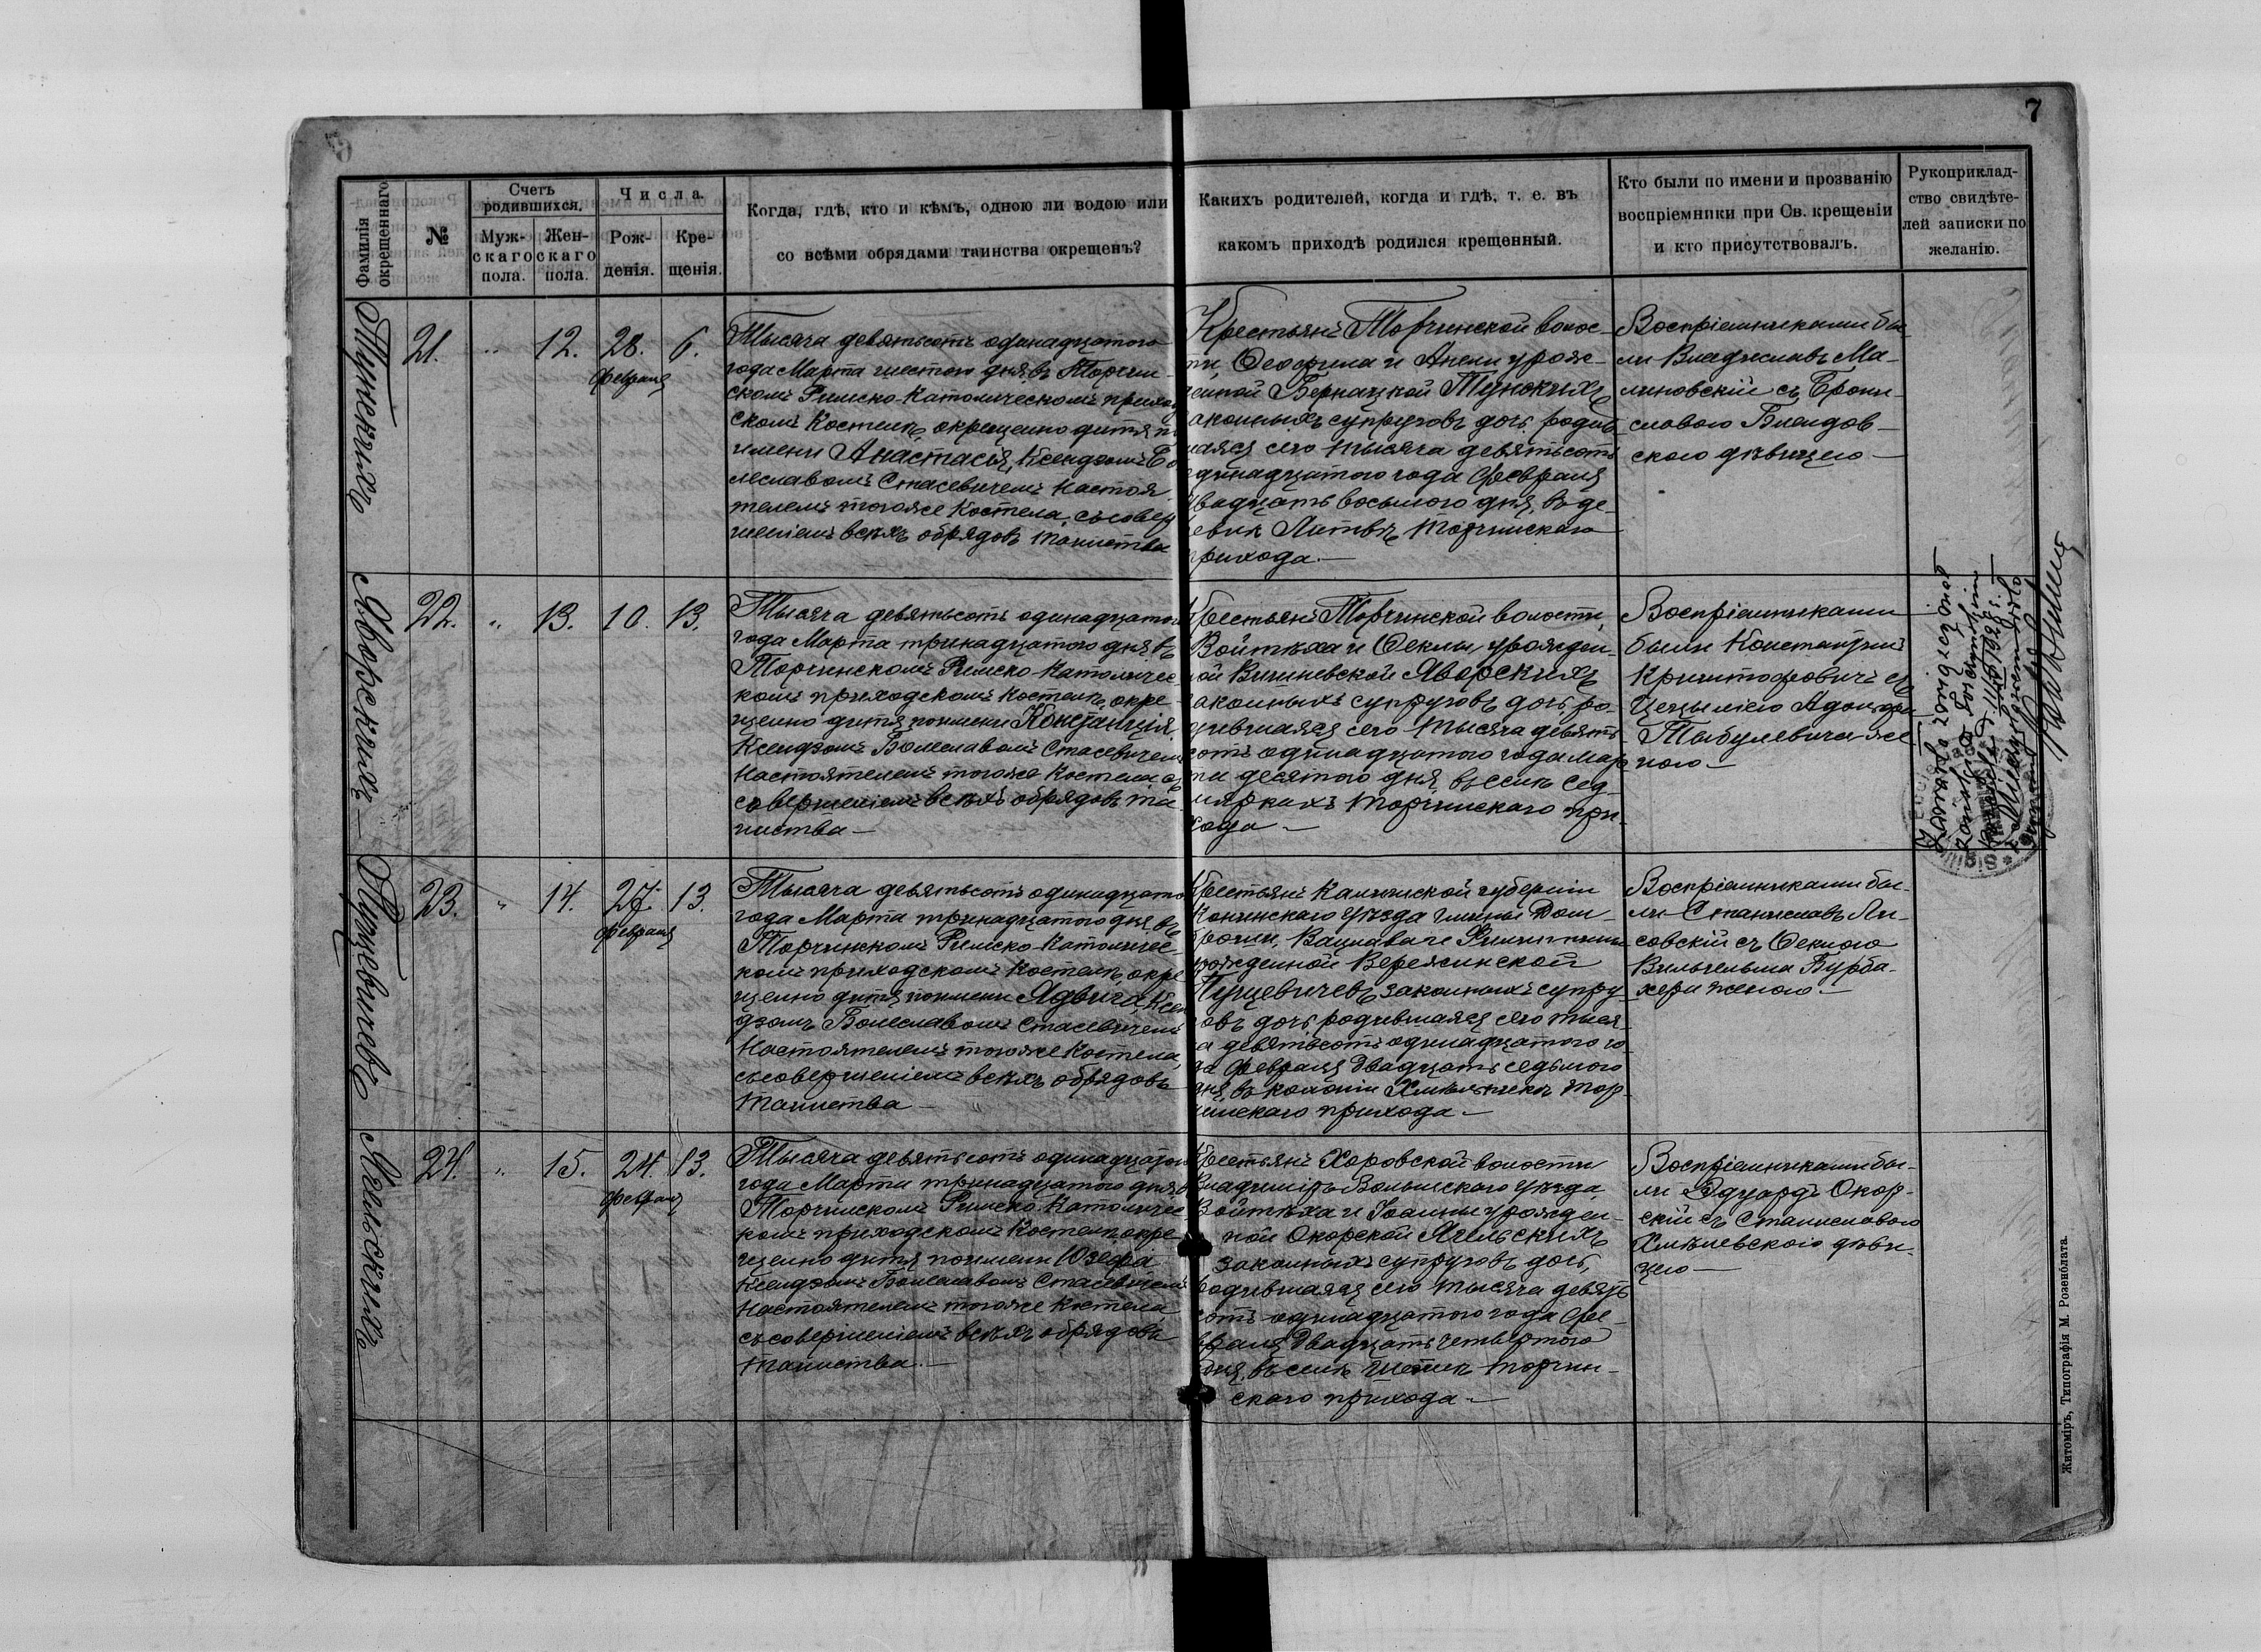 7
Фамилія
окрещеннаго
№
Счетъ
родившихся.
Муж-
скаго
пола.
Жен-
скаго
пола.
Числа.
Рож-
денія.
Кре-
щенія.
Когда, гдѣ, кто и кѣмъ, одною ли водою или
со всѣми обрядами таинства окрещенъ?
Какихъ родителей, когда и гдѣ, т. е. въ
какомъ приходѣ родился крещенный.
Кто были по имени и прозванію
воспріемники при Св. крещеніи
и кто присутствовалъ.
Рукоприклад-
ство свидѣте-
лей записки по
желанію.
Тунскихъ
21.
"
12.
28.
февраля
6.
Тысяча девятьсотъ одинадцатого
года Марта шестого дня, въ Торчин-
скомъ Римско-Католическомъ приход
скомъ Костелѣ, окрещено дитя п
имени Анастасія, Ксендзомъ Бо
леславомъ Стасевичемъ Настоя
телемъ тогоже Костела, съ совер
шеніемъ всѣхъ обрядовъ таинства
Крестьянъ Торчинской волос-
ти, Ѳеофила и Анели урож-
енной Бернацкой Тунскихъ
законныхъ супруговъ дочь родив-
шаяся сего тысяча девятьсотъ
одинадцатого года февраля
двадцать восьмого дня, въ де-
ревнѣ Литвѣ Торчинскаго
прихода.—
Воспріемниками бы-
ли Владиславъ Ма-
линовскій съ Брони-
славою
ского дѣвицею—
Яворскихъ—
22.
"
13.
10.
13.
Тысяча девятьсотъ одинадцатого
года Марта тринадцатого дня въ
Торчинскомъ Римско-Католичес-
комъ приходскомъ Костелѣ, окре-
щено дитя поимени Констанція,
Ксендзомъ Болеславомъ Стасевичемъ
Настоятелемъ тогоже Костела съ
совершеніемъ всѣхъ обрядовъ та-
инства—
Крестьянъ Торчинской волости,
Войтѣха и Ѳеклы урожден-
ной Вишневской Яворскихъ
законныхъ супруговъ дочь ро-
дившаяся сего тысяча девять
сотъ одинадцатого года мар-
та десятого дня, въ селѣ Сад-
Торчинскаго при-
хода—
Воспріемниками
были Константинъ
Криштофовичъ съ
Цецыліею Адольфа
Табулевича же-
ною—
Пуцевичевъ
23.
"
14.
27.
февраля
13.
Тысяча девятьсотъ одинадцато
года Марта тринадцатого дня въ
Торчинскомъ Римско-Католичес-
комъ приходскомъ Костелѣ, окре
щено дитя поимени Ядвига, Ксен
дзомъ Болеславомъ Стасевичемъ
Настоятелемъ тогоже Костела,
съ совершеніемъ всѣхъ обрядовъ
таинства—
Крестьянъ Калишской губерніи
Конинскаго уѣзда гмины Дом-
Вацлава и
рожденной
Пуцевичевъ законныхъ супру-
говъ дочь родившаяся сего тыся-
ча девятьсотъ одинадцатого го-
да февраля двадцать седьмого
дня, въ колоніи Хмѣльникъ Тор-
чинскаго прихода—
Воспріемниками бы-
ли Станиславъ Ли-
совскій съ Ѳеклою
Вильгельма Бурба-
хера женою.—
24.
"
15.
24.
февраля
13.
Тысяча девятьсотъ одинадцатого
года Марта тринадцатого дня въ
Торчинскомъ Римско-Католичес-
комъ приходскомъ Костелѣ окре-
щено дитя поимени Юзефа
Ксендзомъ Болеславомъ Стасевичемъ
Настоятелемъ тогоже Костела,
съ совершеніемъ всѣхъ обрядовъ
таинства.—
Крестьянъ Хоровской волости
Владиміръ Волынскаго уѣзда
Войтѣха и Іоанны урожден-
ной Окорской
законныхъ супруговъ дочь,
родившаяся сего тысяча девять
сотъ одинадцатого года фе-
враля двадцать четвертого
дня, въ селѣ Торчин-
скаго прихода—
Воспріемниками бы-
ли Эдуардъ Окор-
скій съ Станиславою
Хмѣлевскою дѣви-
цею—
Житоміръ, Типографія М. Розенблата.